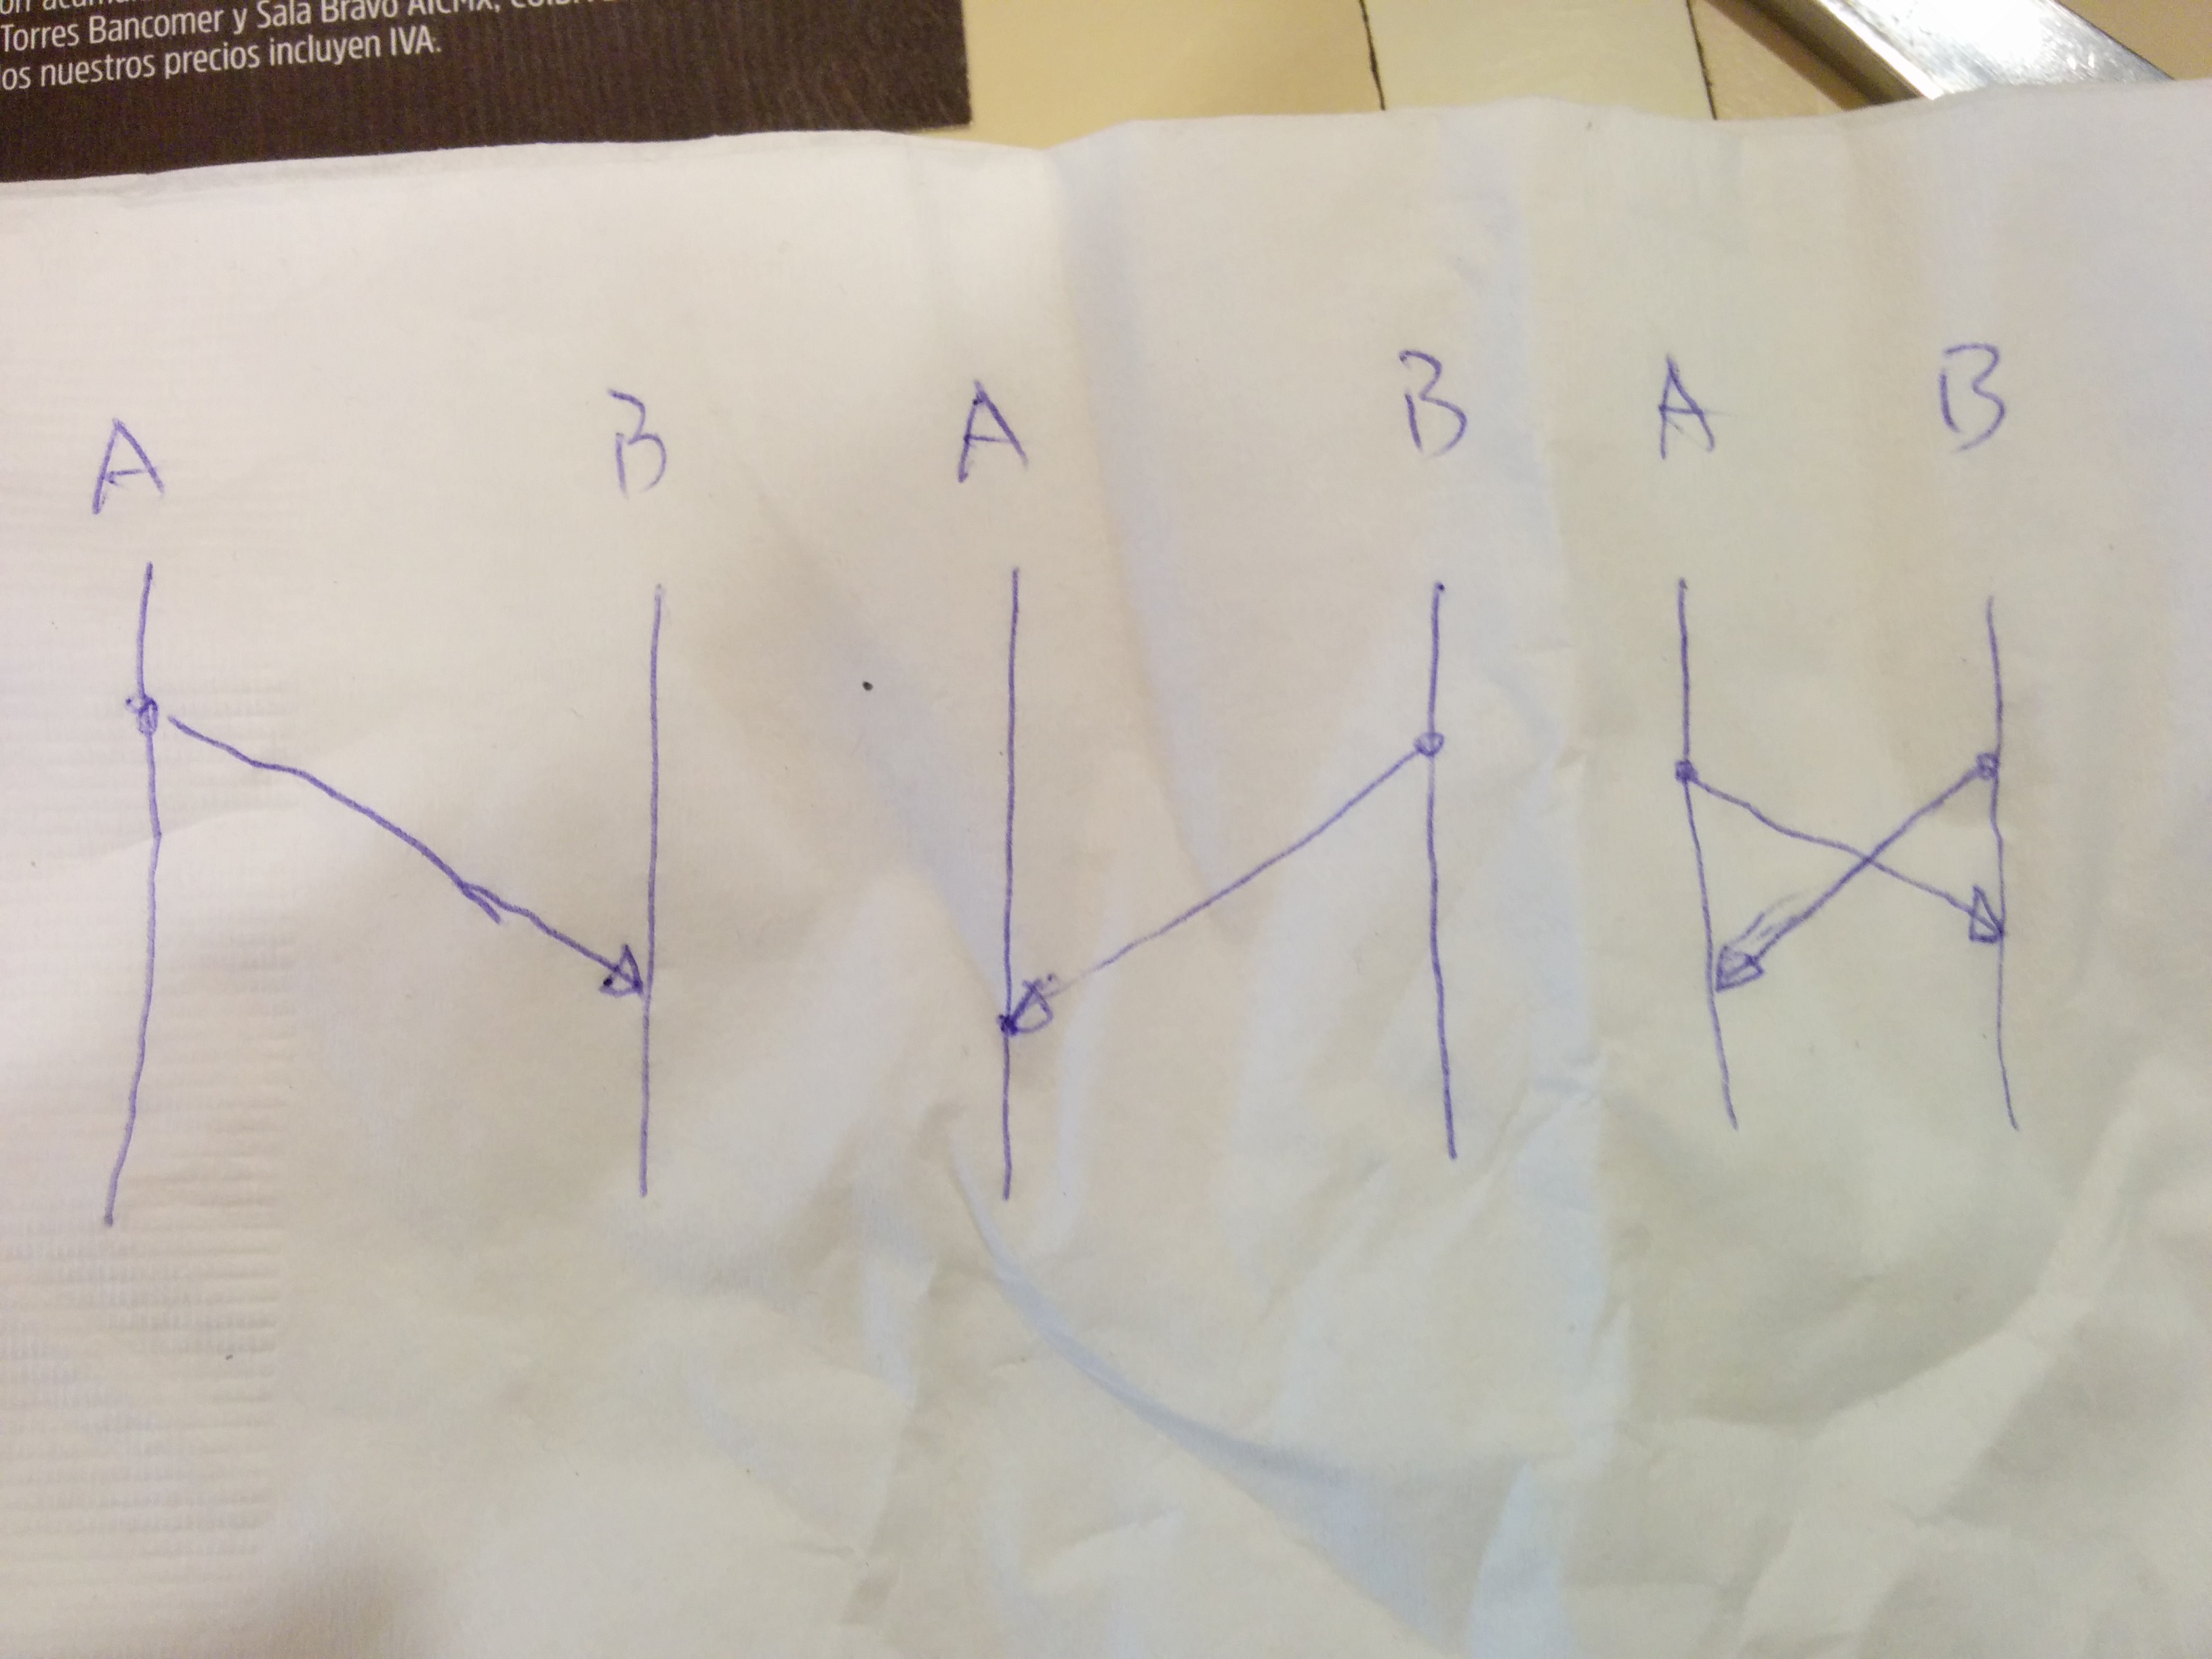 Torres Bancomer y Sala Bravo AICMX,
os nuestros precios incluyen IVA.
A B A B A B